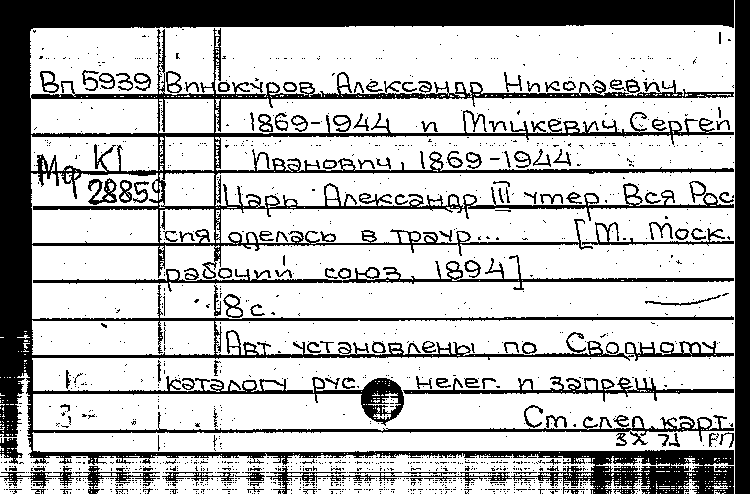 1.
Вп 5939 Винокуров, Александр Николаевич,
1869-1944 и Мицкевич, Сергей
Мф К1/28859 Иванович, 1869-1944.
Царь Александр III умер. Вся Рос
сия оделась в траур... [М., Моск.
рабочий союз, 1894].
8 с.
Авт. установлены по Сводному
1с каталогу рус. нелег. и запрещ.
3- Ст. след. карт.
3 X 71 РП